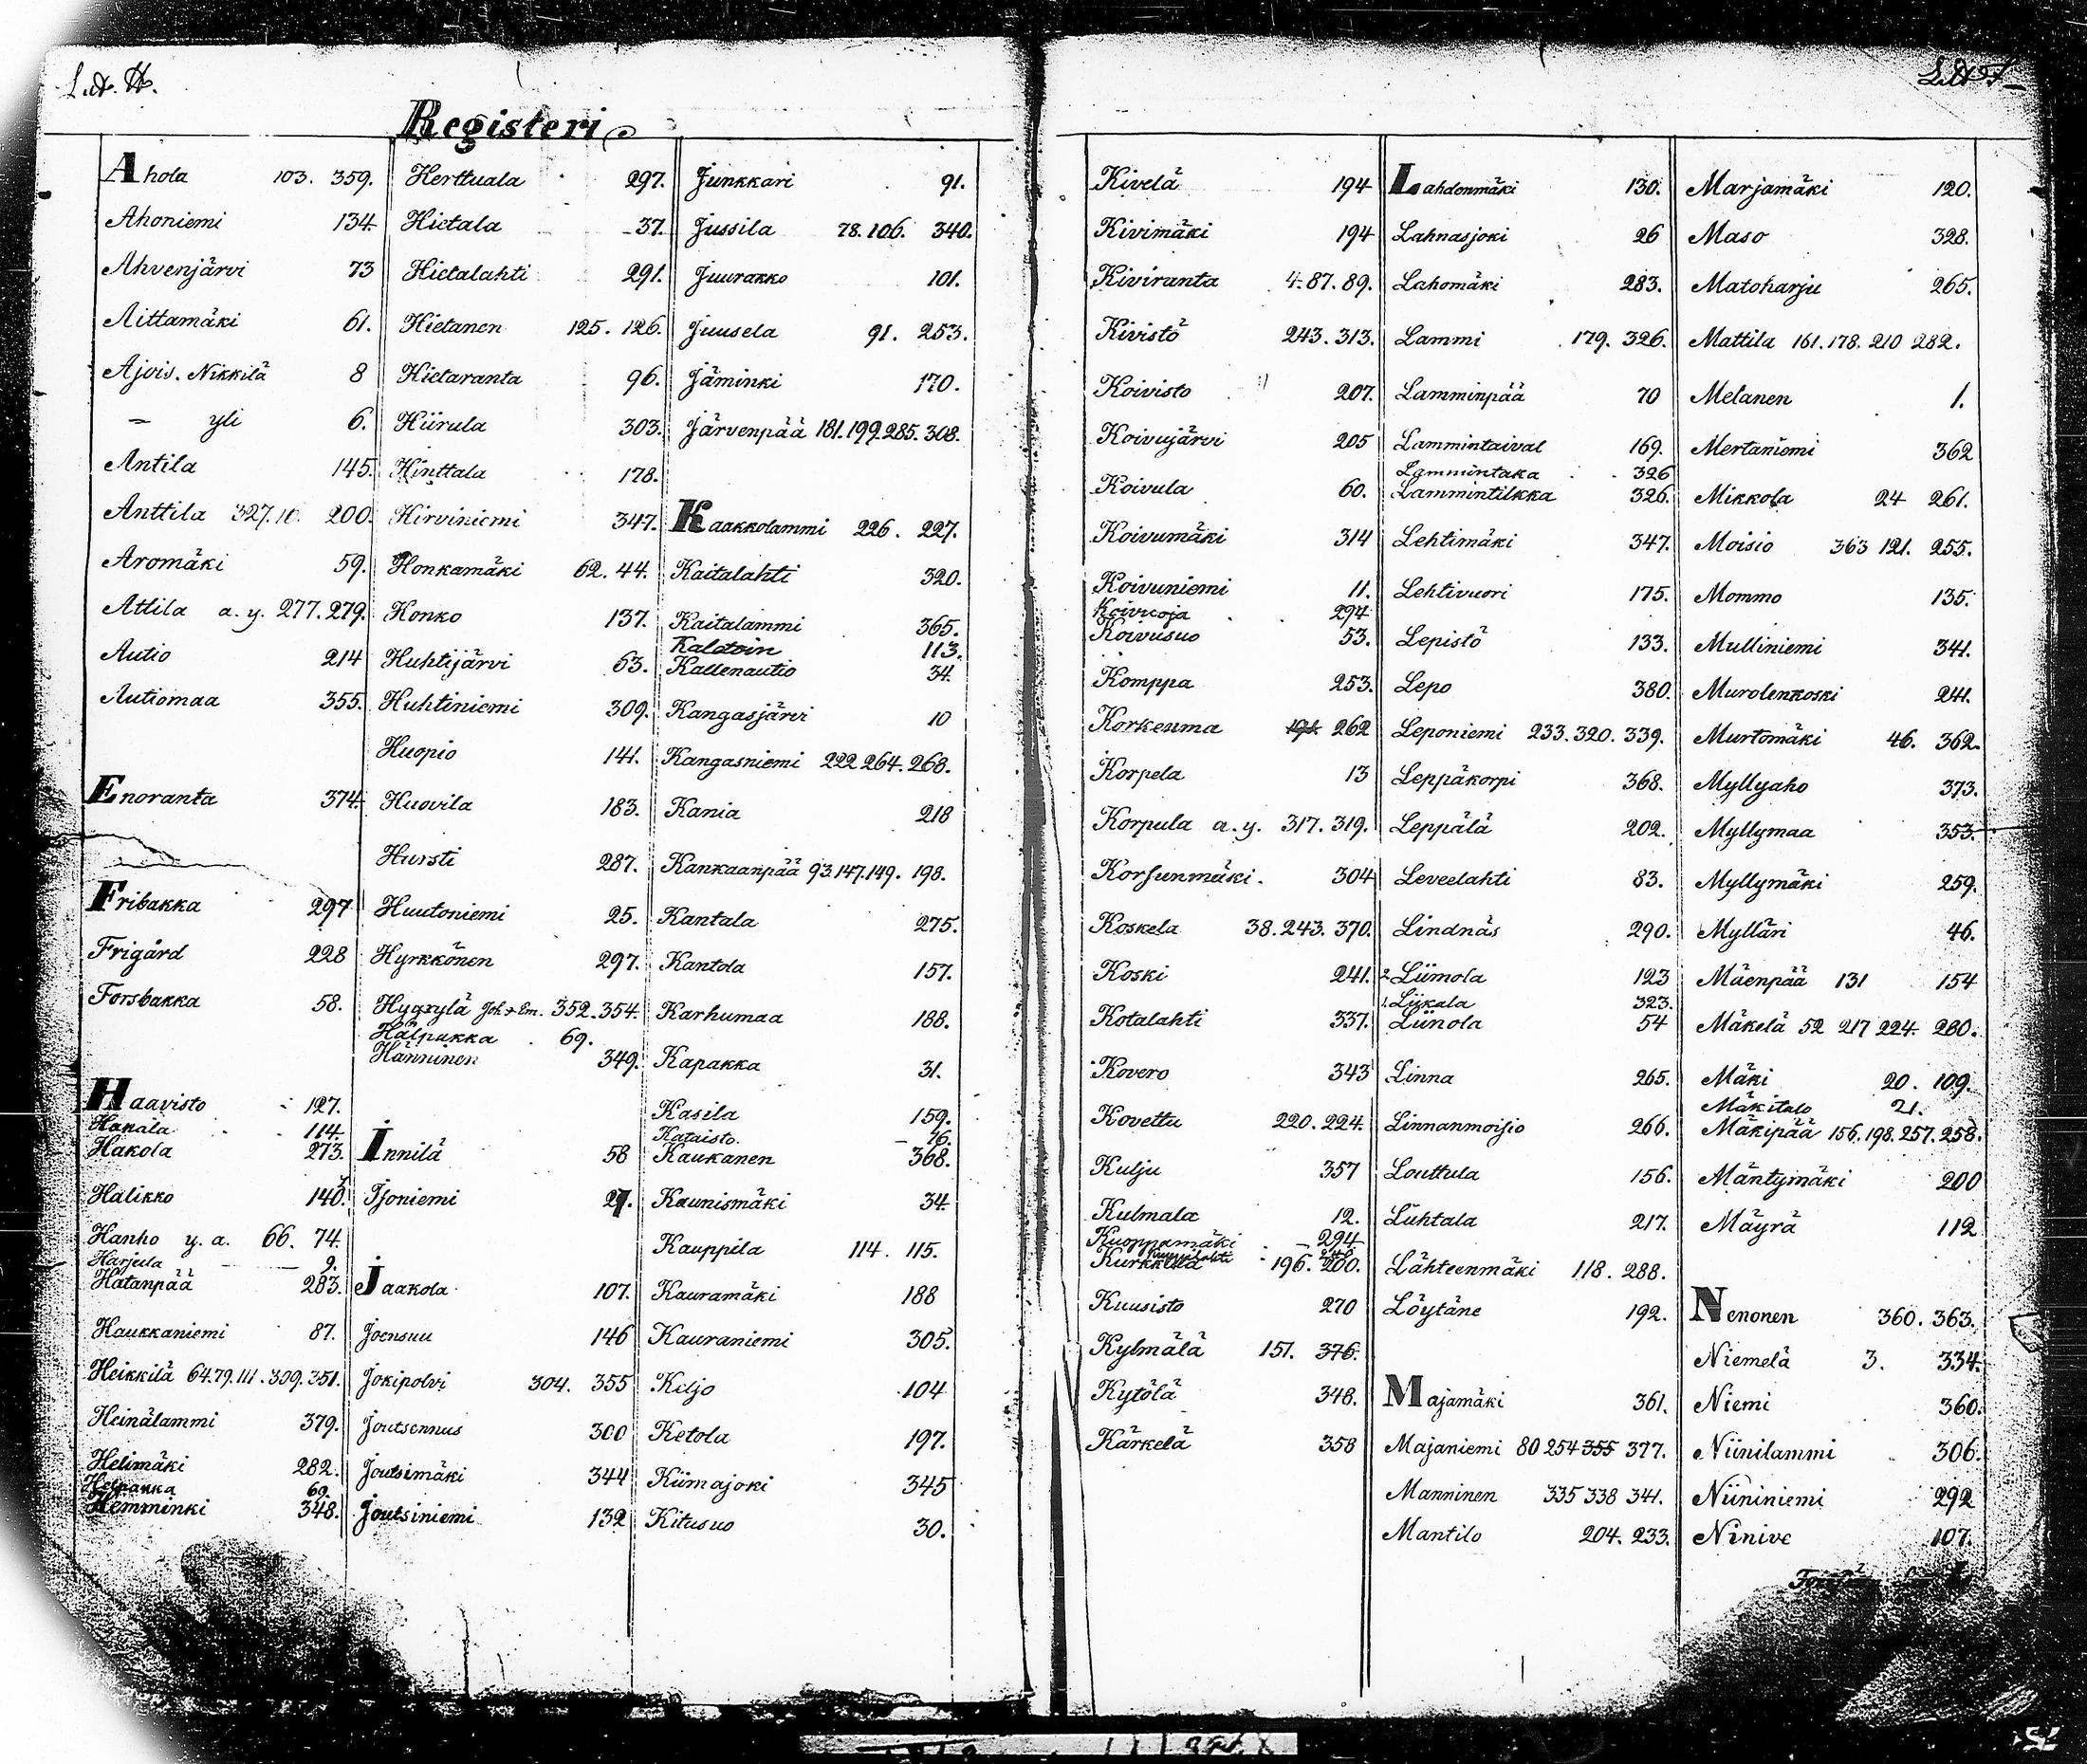 L.A.H.
Registeri
Ahola 103. 359.
Ahoniemi 134
Ahvenjärvi 73
Aittamäki 61.
Ajois. Nikkilä 8
= yli 6.
Antila 145.
Anttila 327. 10. 200.
Aromäki 59.
Attila a. y. 277. 279.
Autio 214
Autiomaa 355.
Enoranta 374.
Fribakka 297
Frigård 228
Forsbakka 58.
Haavisto 127.
Hanala 114.
Hakola 273.
Halikko 140.
Hanho y. a. 66. 74.
Harjula 9.
Hatanpää 283.
Haukkaniemi 87.
Heikkilä 64. 79. 111. 309. 351.
Heinälammi 379.
Helimäki 282.
Helpakka 69.
Hemminki 348.
Herttuala 297.
Hietala 37.
Hietalahti 291.
Hietanen 125. 126.
Hietaranta 96.
Hiirula 303.
Hinttala 178.
Hirviniemi 347.
Honkamäki 62. 44.
Honko 137.
Huhtijärvi 63.
Huhtiniemi 309.
Huopio 141.
Huovila 183.
Hursti 287.
Huutoniemi 25.
Hyrkkönen 297.
Hyyrylä Joh. & Em. 352. 354.
Hälpukka 69.
Hänninen 349.
Innilä 58
Ijoniemi 27.
Jaakola 107.
Joensuu 146
Jokipolvi 304. 355
Joutsennus 300
Joutsimäki 344
Joutsiniemi 132
Junkkari 91.
Jussila 78. 106. 340.
Juurakko 101.
Juusela 91. 253.
Jäminki 170.
Järvenpää 181. 199. 285. 308.
Kaakkolammi 226. 227.
Kaitalahti 320.
Kaitalammi 365.
Kalatoin 113.
Kallenautio 34.
Kangasjärvi 10
Kangasniemi 222 264. 268.
Kania 218
Kankaanpää 93. 147. 149. 198.
Kantala 275.
Kantola 157.
Karhumaa 188.
Kapakka 31.
Kasila 159.
Kataisto. 76.
Kaukanen 368.
Kaunismäki 34.
Kauppila 114. 115.
Kauramäki 188
Kauraniemi 305.
Keljo 104
Ketola 197.
Kiimajoki 345
Kitusuo 30.
Kivelä 194
Kivimäki 194
Kiviranta 4. 87. 89.
Kivistö 243. 313.
Koivisto 207.
Koivujärvi 205
Koivula 60.
Koivumäki 314
Koivuniemi 11.
Koivuoja 294
Koivusuo 53.
Komppa 253.
Korkeuma 194 262
Korpela 13
Korpula a. y. 317. 319.
Korsunmäki. 304
Koskela 38. 243. 370.
Koski 241.
Kotalahti 337.
Kovero 343
Kovettu 220. 224.
Kulju 357
Kulmala 12.
Kuoppamäki 294
Kurkkela 196. 200.
Kuusisto 270
Kylmälä 151. 376.
Kytölä 348.
Kärkelä 358
Lahdenmäki 130.
Lahnasjoki 26
Lahomäki 283.
Lammi 179. 326.
Lamminpää 70
Lammintaival 169.
Lammintaka 326
Lammintilkka 326.
Lehtimäki 347.
Lehtivuori 175.
Lepistö 133.
Lepo 380.
Leponiemi 233. 320. 339.
Leppäkorpi 368.
Leppälä 202.
Leveelahti 83.
Lindnäs 290.
2. Liimola 123
1. Liikala 323.
Liinola 54
Linna 265.
Linnanmoijio 266.
Louttula 156.
Luhtala 217.
Lähteenmäki 118. 288.
Löytäne 192.
Majamäki 361.
Majaniemi 80 254 355 377.
Manninen 335 338 341.
Mantilo 204. 233.
L.A.H.
Marjamäki 120.
Maso 328.
Matoharju 265.
Mattila 161. 178. 210 282.
Melanen 1.
Mertaniemi 362
Mikkola 24 261.
Moisio 363 121. 255.
Mommo 135.
Mulliniemi 341.
Murolenkoski 241.
Murtomäki 46. 362.
Myllyaho 373.
Myllymaa 353.
Myllymäki 259.
Mylläri 46.
Mäenpää 131 154
Mäkelä 52 217 224. 280.
Mäki 20. 109.
Mäkitalo 21.
Mäkipää 156. 198. 257. 258.
Mäntymäki 200
Mäyrä 112
Nenonen 360. 363.
Niemelä 3. 334.
Niemi 360.
Niinilammi 306.
Niininiemi 292
Ninive 107.